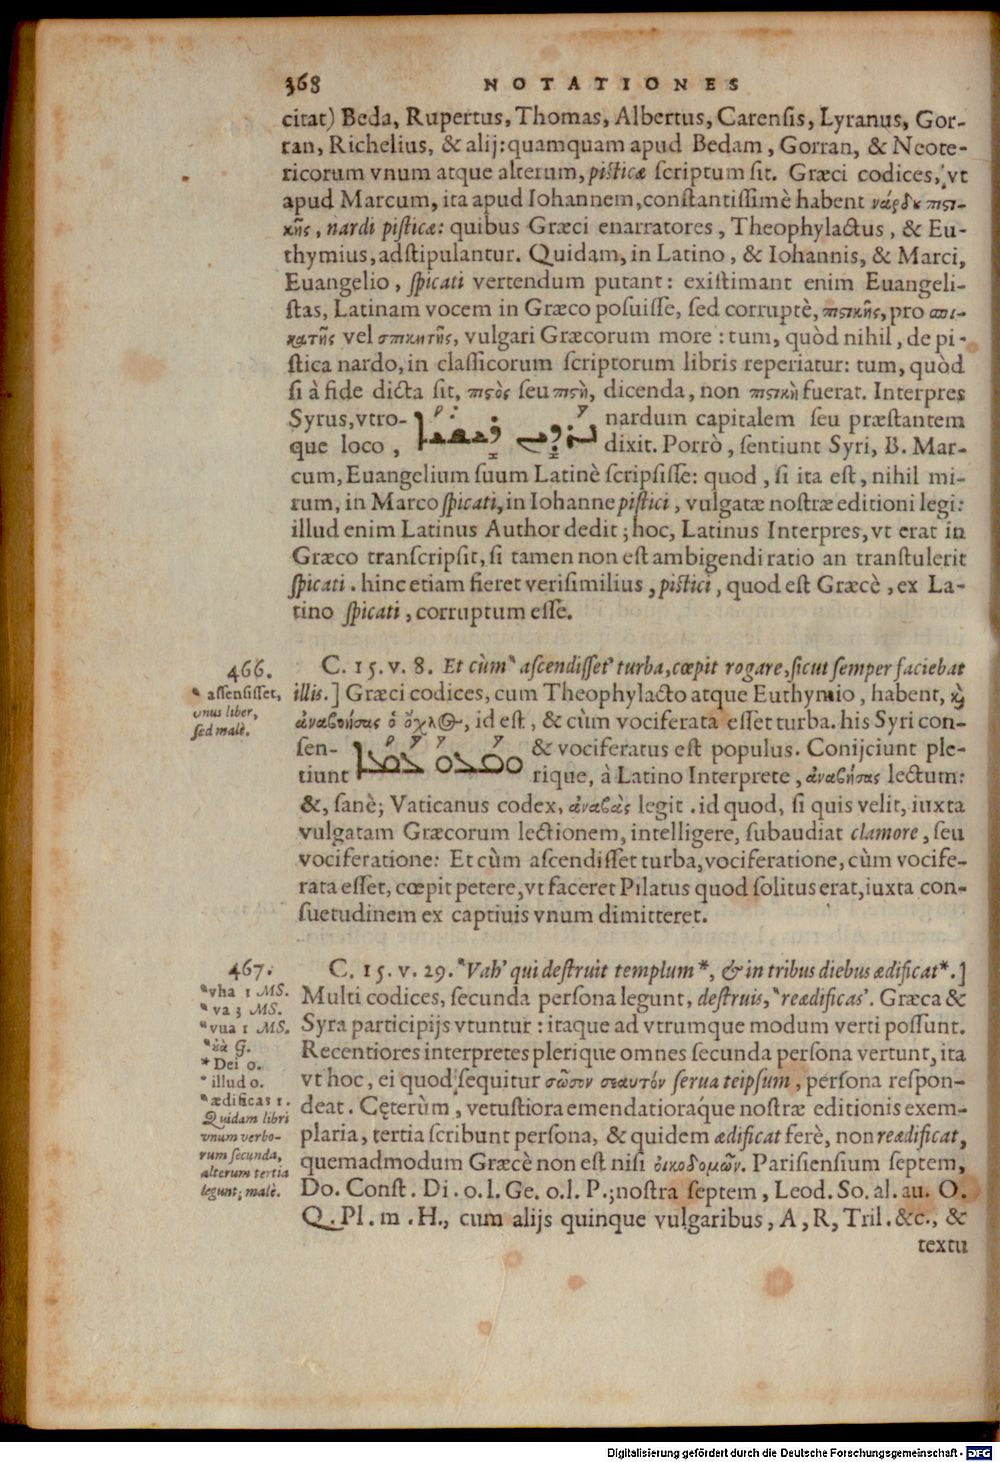 368 NOTATIONES
citat) Beda, Rupertus, Thomas, Albertus, Carensis, Lyranus, Gor-
ran, Richelius, & alij: quamquam apud Bedam, Gorran, & Neote-
ricorum vnum atque alterum, pisticæ scriptum sit. Græci codices, vt
apud Marcum, ita apud Iohannem, constantissimè habent νάρδου πιστι-
κῆς, nardi pisticæ: quibus Græci enarratores, Theophylactus, & Eu-
thymius, adstipulantur. Quidam, in Latino, & Iohannis, & Marci,
Euangelio, spicati vertendum putant: existimant enim Euangeli-
stas, Latinam vocem in Græco posuisse, sed corruptè, πιστικῆς, pro σπι-
κατῆς vel σπικητῆς, vulgari Græcorum more: tum, quòd nihil, de pi-
stica nardo, in classicorum scriptorum libris reperiatur: tum, quòd
si à fide dicta sit, πιστὸς seu πιστὴ, dicenda, non πιστικὴ fuerat. Interpres
Syrus, vtro- nardum capitalem seu præstantem
que loco, dixit. Porrò, sentiunt Syri, B. Mar-
cum, Euangelium suum Latinè scripsisse: quod, si ita est, nihil mi-
rum, in Marco spicati, in Iohanne pistici, vulgatæ nostræ editioni legi:
illud enim Latinus Author dedit; hoc, Latinus Interpres, vt erat in
Græco transcripsit, si tamen non est ambigendi ratio an transtulerit
spicati. hinc etiam fieret verisimilius, pistici, quod est Græcè, ex La-
tino spicati, corruptum esse.
466. C. 15. v. 8. Et cùm ‟ ascendisset' turba, cœpit rogare, sicut semper faciebat
‟ assensisset, illis.] Græci codices, cum Theophylacto atque Euthymio, habent, καὶ
vnus liber, ἀναβοήσας ὁ ὄχλος, id est, & cùm vociferata esset turba. his Syri con-
sed malè. sen- ܘܩܥܘ & vociferatus est populus. Conijciunt ple-
tiunt rique, à Latino Interprete, ἀναβήσας lectum:
&, sanè; Vaticanus codex, ἀναβὰς legit. id quod, si quis velit, iuxta
vulgatam Græcorum lectionem, intelligere, subaudiat clamore, seu
vociferatione: Et cùm ascendisset turba, vociferatione, cùm vocife-
rata esset, cœpit petere, vt faceret Pilatus quod solitus erat, iuxta con-
suetudinem ex captiuis vnum dimitteret.
467. C. 15. v. 29. ‟Vah' qui destruit templum*, & in tribus diebus ædificat*.]
‟vha 1 MS. Multi codices, secunda persona legunt, destruis, ‟reædificas'. Græca &
‟ va 3 MS.
‟vua 1 MS. Syra participijs vtuntur: itaque ad vtrumque modum verti possunt.
‟οὐὰ G. Recentiores interpretes plerique omnes secunda persona vertunt, ita
* Dei o.
* illud o. vt hoc, ei quod sequitur σῶσον σεαυτόν serua teipsum, persona respon-
‟ædificas 1. deat. Cęterùm, vetustiora emendatioraq́ue nostræ editionis exem-
Quidam libri
vnum verbo- plaria, tertia scribunt persona, & quidem ædificat ferè, non reædificat,
rum secunda, quemadmodum Græcè non est nisi οἰκοδομῶν. Parisiensium septem,
alterum tertia
legunt; malè. Do. Const. Di. o.l. Ge. o.l. P.; nostra septem, Leod. So. al. au. O.
Q. Pl. m. H., cum alijs quinque vulgaribus, A, R, Tril. &c., &
textu
Digitalisierung gefördert durch die Deutsche Forschungsgemeinschaft - DFG